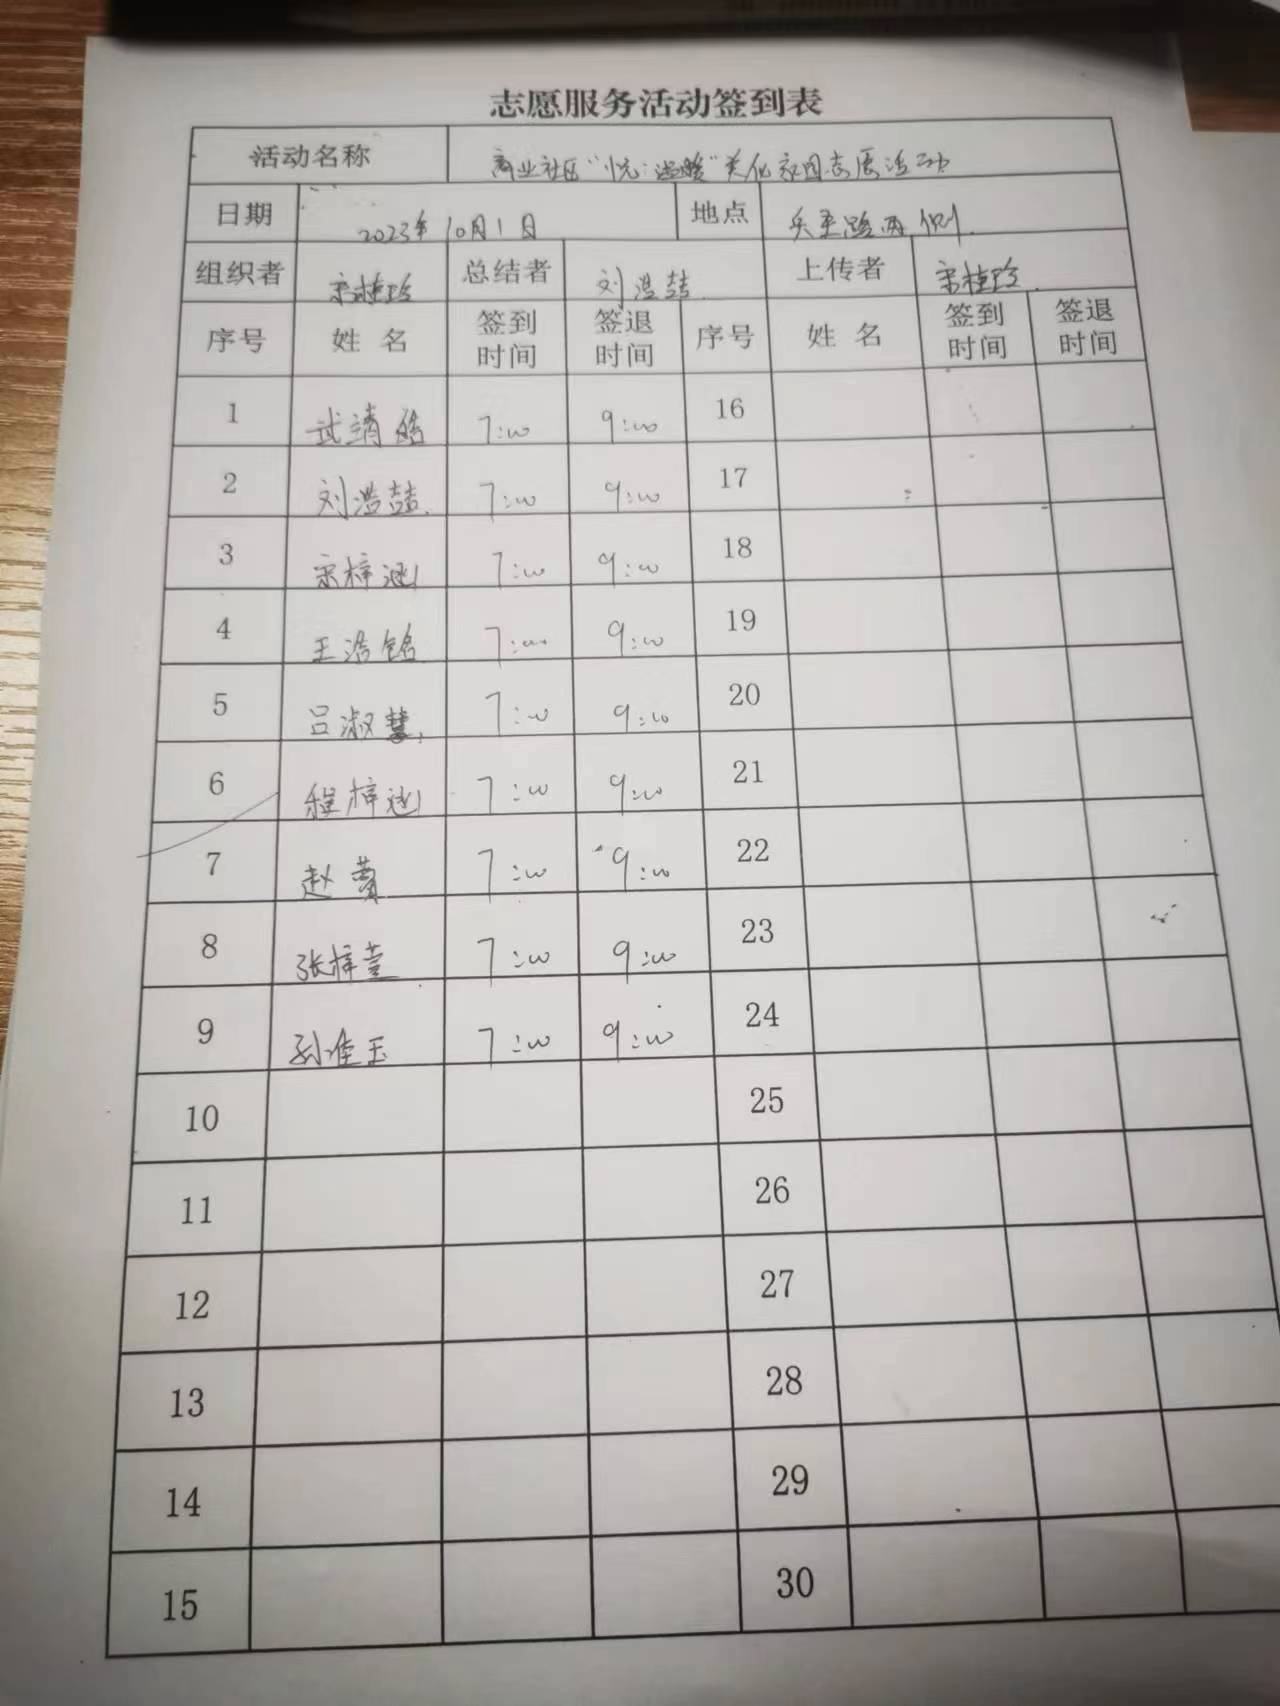 志愿服务活动签到表
活动名称 商业社区“悦·温暖”美化家园志愿活动
日期 2023年10月1日 地点 路两侧
组织者 宋桂玲 总结者 刘浩喆 上传者 宋桂玲
序号 姓名 签到时间 签退时间 序号 姓名 签到时间 签退时间
1 武靖皓 7:00 9:00 16
2 刘浩喆 7:00 9:00 17
3 宋梓涵 7:00 9:00 18
4 王浩铭 7:00 9:00 19
5 吕淑慧 7:00 9:00 20
6 程梓涵 7:00 9:00 21
7 赵 7:00 9:00 22
8 张梓萱 7:00 9:00 23
9 孙佳玉 7:00 9:00 24
10 25
11 26
12 27
13 28
14 29
15 30